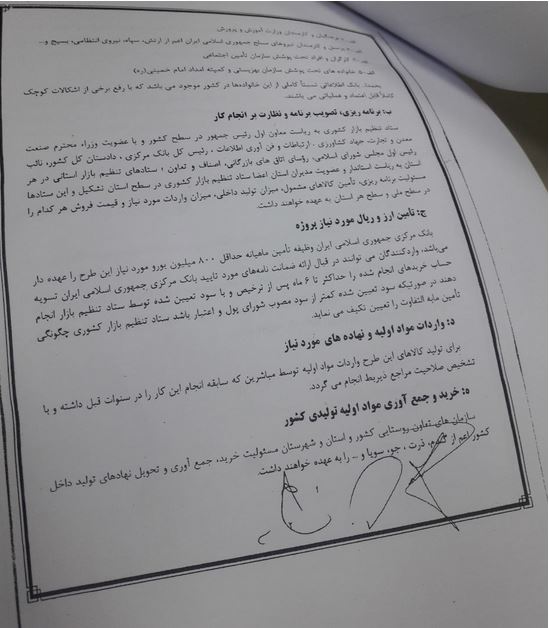 الف-۳- فرهنگیان و کارمندان وزارت آموزش و پرورش
الف-۴- پرسنل و کارمندان نیروهای مسلح جمهوری اسلامی ایران اعم از ارتش، سپاه، نیروی انتظامی، بسیج و...
کارگران و افراد تحت پوشش سازمان تأمین اجتماعی
الف-۵- خانواده های تحت پوشش سازمان بهزیستی و کمیته امداد امام خمینی(ره)
بانک اطلاعاتی نسبتاً کاملی از این خانوادهها در کشور موجود می باشد که با رفع برخی از اشکالات کوچک
کاملاً قابل اعتماد و عملیاتی می باشند.
ب: برنامه ریزی، تصویب برنامه و نظارت بر انجام کار
ستاد تنظیم بازار کشوری به ریاست معاون اول رئیس جمهور در سطح کشور و با عضویت وزراء محترم صنعت
معدن و تجارت، جهاد کشاورزی ، ارتباطات و فن آوری اطلاعات ، رئیس کل بانک مرکزی ، دادستان کل کشور، نائب
رئیس اول مجلس شورای اسلامی، رؤسای اتاق های بازرگانی، اصناف و تعاون ؛ ستادهای تنظیم بازار استانی در هر
استان به ریاست استاندار و عضویت مدیران استان اعضا ستاد تنظیم بازار کشوری در سطح استان تشکیل و این ستادها
مسئولیت برنامه ریزی، تأمین کالاهای مشمول، میزان تولید داخلی، میزان واردات مورد نیاز و قیمت فروش هر کدام را
در سطح ملی و سطح هر استان به عهده خواهند داشت.
ج: تأمین ارز و ریال مورد نیاز پروژه
بانک مرکزی جمهوری اسلامی ایران وظیفه تأمین ماهیانه حداقل ۸۰۰ میلیون یورو مورد نیاز این طرح را عهده دار
می‌باشد، واردکنندگان می توانند در قبال ارائه ضمانت نامه‌های مورد تایید بانک مرکزی جمهوری اسلامی ایران تسویه
حساب خریدهای انجام شده را حداکثر تا ۶ ماه پس از ترخیص و با سود تعیین شده توسط ستاد تنظیم بازار انجام
دهند در صورتیکه سود تعیین شده کمتر از سود مصوب شورای پول و اعتبار باشد ستاد تنظیم بازار کشوری چگونگی
تأمین مابه التفاوت را تعیین تکلیف می نماید.
د: واردات مواد اولیه و نهاده های مورد نیاز
برای تولید کالاهای این طرح واردات مواد اولیه توسط مباشرین که سابقه انجام این کار را در سنوات قبل داشته و با
تشخیص صلاحیت مراجع ذیربط انجام می گردد.
ه: خرید و جمع آوری مواد اولیه تولیدی کشور
سازمان های تعاون روستایی کشور و استان و شهرستان مسئولیت خرید، جمع آوری و تحویل نهادهای تولید داخل
کشور اعم از گندم، ذرت ، جو، سویا و ... را به عهده خواهند داشت.